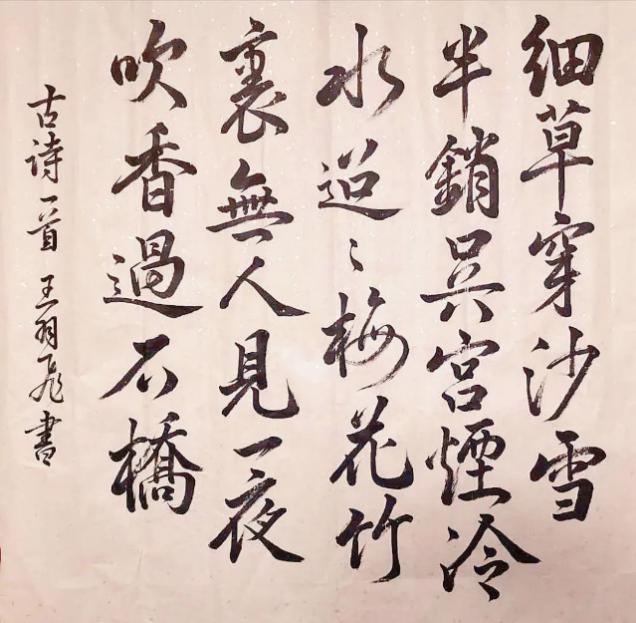 細草穿沙雪
半銷吳宮煙冷
水迢〻梅花竹
裏無人見一夜
吹香過石橋
古詩一首 王羽飛書